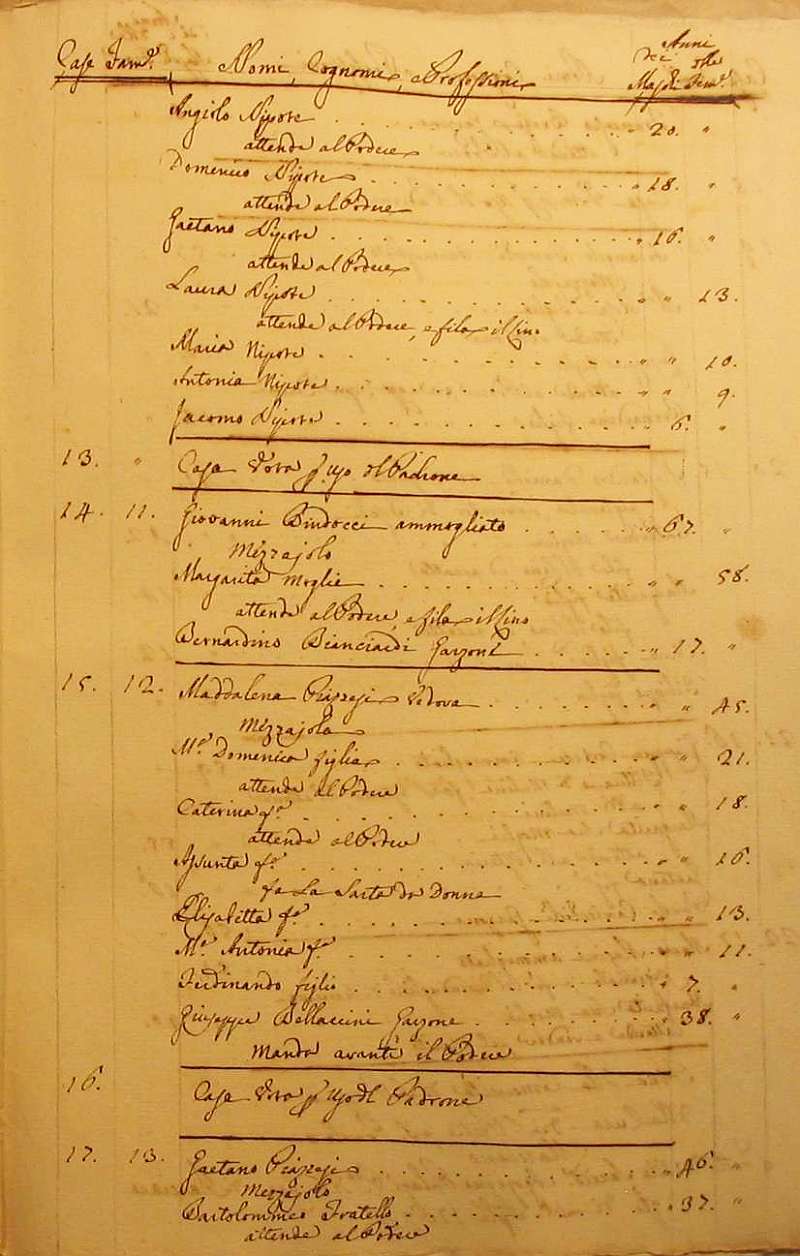 Case Fam.e Nomi, Cognomi, e Professioni Anni
dei delle
Maschi Fem.e
Angiolo Nipote 20. "
attende al Podere
Domenico Nipote " 18. "
attende al Podere
Gaetano Nipote " 16. "
attende al Podere
Laura Nipote " " 13.
attende al Podere, e fila il Lino
Maria Nipote " " 10.
Antonia Nipote " " 9.
Jacomo Nipote " 6. "
13. " Casa Vota p. uso del Padrone
14. 11. Giovanni Bindocci ammogliato " 67. "
Mezzajolo
Margarita moglie " " 58.
attende al Podere, e fila il Lino
Bernardino Bianciardi Garzone " 17. "
15. 12. Maddalena Piazzesi Vedova " " 45.
Mezzajola
M.a Domenica figlia " " 21.
attende al Podere
Caterina f.a " " 18.
attende al Podere
Assunta f.a " " 16.
fa La Sarta da Donna
Elisabetta f.a " " 13.
M.a Antonia f.a " " 11.
Ferdinando figlio " 7. "
Giuseppe Bellaccini Garzone " 38. "
Manda avanti il Podere
16. Casa Vota p. Uso del Padrone
17. 13. Gaetano Piazzesi " 46. "
Mezzajolo
Bartolommeo Fratello " 37. "
attende al Podere